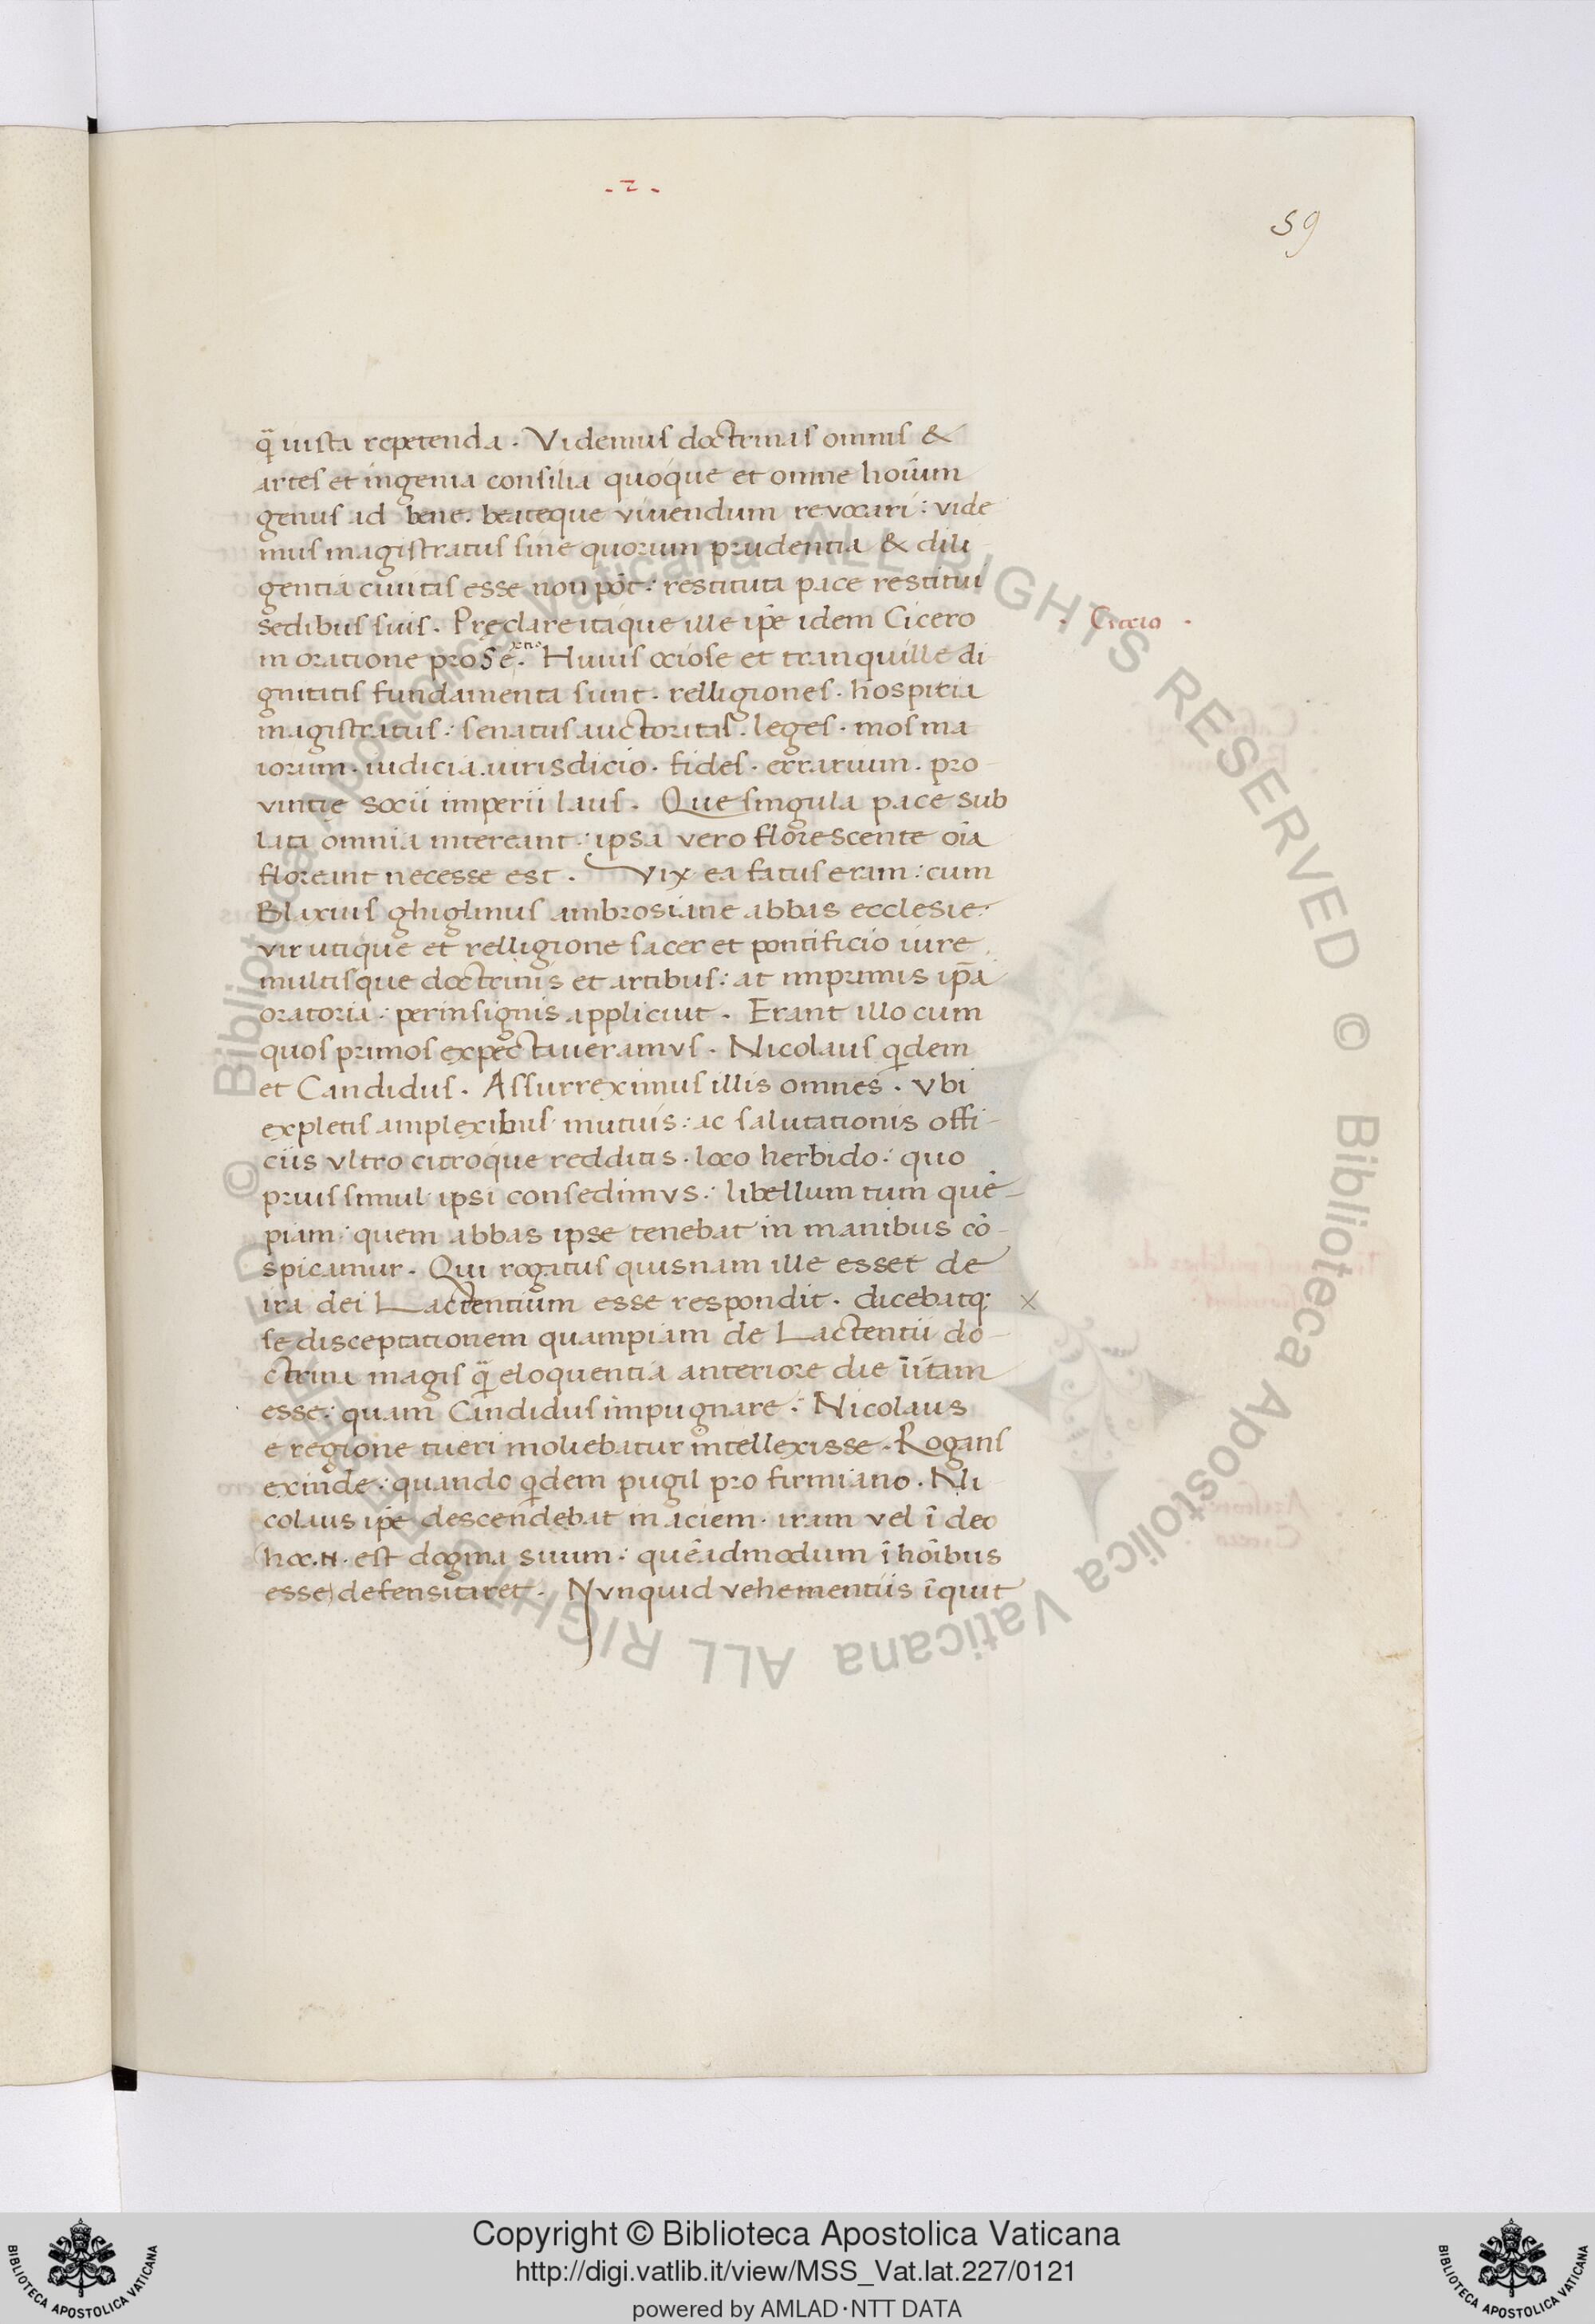 - 2 -
59
q̄ iusta repetenda. Videmus doctrinas omnis &
artes et ingenia consilia quoque et omne hoīum
genus ad bene. beateque vivendum revocari: vide
mus magistratus sine quorum prudentia & dili
gentia civitas esse non pōt: restituta pace restitui
sedibus suis. Pręclare itaque ille ip̄e idem Cicero
. Cicero .
in oratione pro Se. Huius ociose et tranquille di
gnitatis fundamenta sunt. relligiones. hospitia
magistratus: senatus auctoritas. leges. mos ma
iorum. iudicia. iurisdicio. fides. ęrrarium. pro
vintię socii imperii laus. Que singula pace sub
lata omnia intereant: ipsa vero florescente oīa
floreant necesse est. Vix ea fatus eram: cum
Blaxius ghiglinus ambrosiane abbas ecclesie:
vir utique et relligione sacer et pontificio iure
multisque doctrinis et artibus: at imprimis ip̄a
oratoria: perinsignis applicuit. Erant illo cum
quos primos expectaveramus. Nicolaus qͥdem
et Candidus. Assurreximus illis omnes. Vbi
expletis amplexibus mutuis: ac salutationis offi-
ciis vltro citroque redditis. loco herbido: quo
prius simul ipsi consedimus: libellum tum quē-
piam: quem abbas ipse tenebat in manibus cō-
spicamur. Qui rogatus quisnam ille esset de
ira dei Lactentium esse respondit. dicebatq:
×
se disceptationem quampiam de Lactentii do-
ctrina magis q̄ eloquentia anteriore die īitam
esse: quam Candidus impugnare: Nicolaus
e regione tueri moliebatur intellexisse. Rogans
exinde: quando qͥdem pugil pro firmiano. Ni
colaus ip̄e descendebat in aciem. iram vel ī deo
(hoc .N. est dogma suum: quēadmodum ī hoībus
esse) defensitaret. Nunquid vehementius īquit
Copyright © Biblioteca Apostolica Vaticana
http://digi.vatlib.it/view/MSS_Vat.lat.227/0121
powered by AMLAD·NTT DATA
BIBLIOTECA APOSTOLICA VATICANA
BIBLIOTECA APOSTOLICA VATICANA
© Biblioteca Apostolica Vaticana ALL RIGHTS RESERVED © Biblioteca Apostolica Vaticana ALL RIGHTS RESERVED